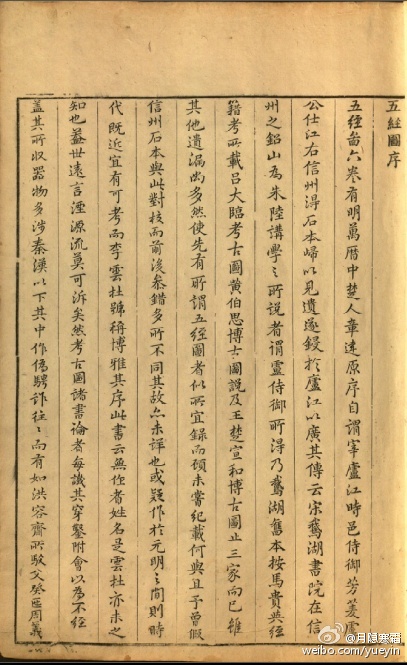 五經圖序
五經啚六卷有明萬曆中楚人章達原序自謂宰廬江時邑侍御芳菱盧
公仕江右信州淂石本歸以見遺遂鋟扵廬江以廣其傳云宋鵞湖書院在信
州之鉛山為朱陸講學之所說者謂盧侍御所淂乃鵞湖舊本按馬貴與經
籍考所載呂大臨考古圖黄伯思博古圖說及王楚宣和博古圖止三家而已雖
其他遺漏尚多然使先有所謂五經圖者似所宜録而頋未嘗紀載何與且予曾假
信州石本與此對技而前後叅錯多所不同其故亦未詳也或疑作扵元明之間則時
代既近宜有可考而李雲杜號稱博雅其序此書云無作者姓名是雲杜亦未之
知也葢世遠言湮源流莫可泝矣然考古圖諸書論者每譏其穿鑿附會以為不經
盖其所収噐物多涉秦漢以下其中作僞騁詐往之而有如洪容齋所駁父癸匜周義
@月隐寒霜
weibo.com/yueyin